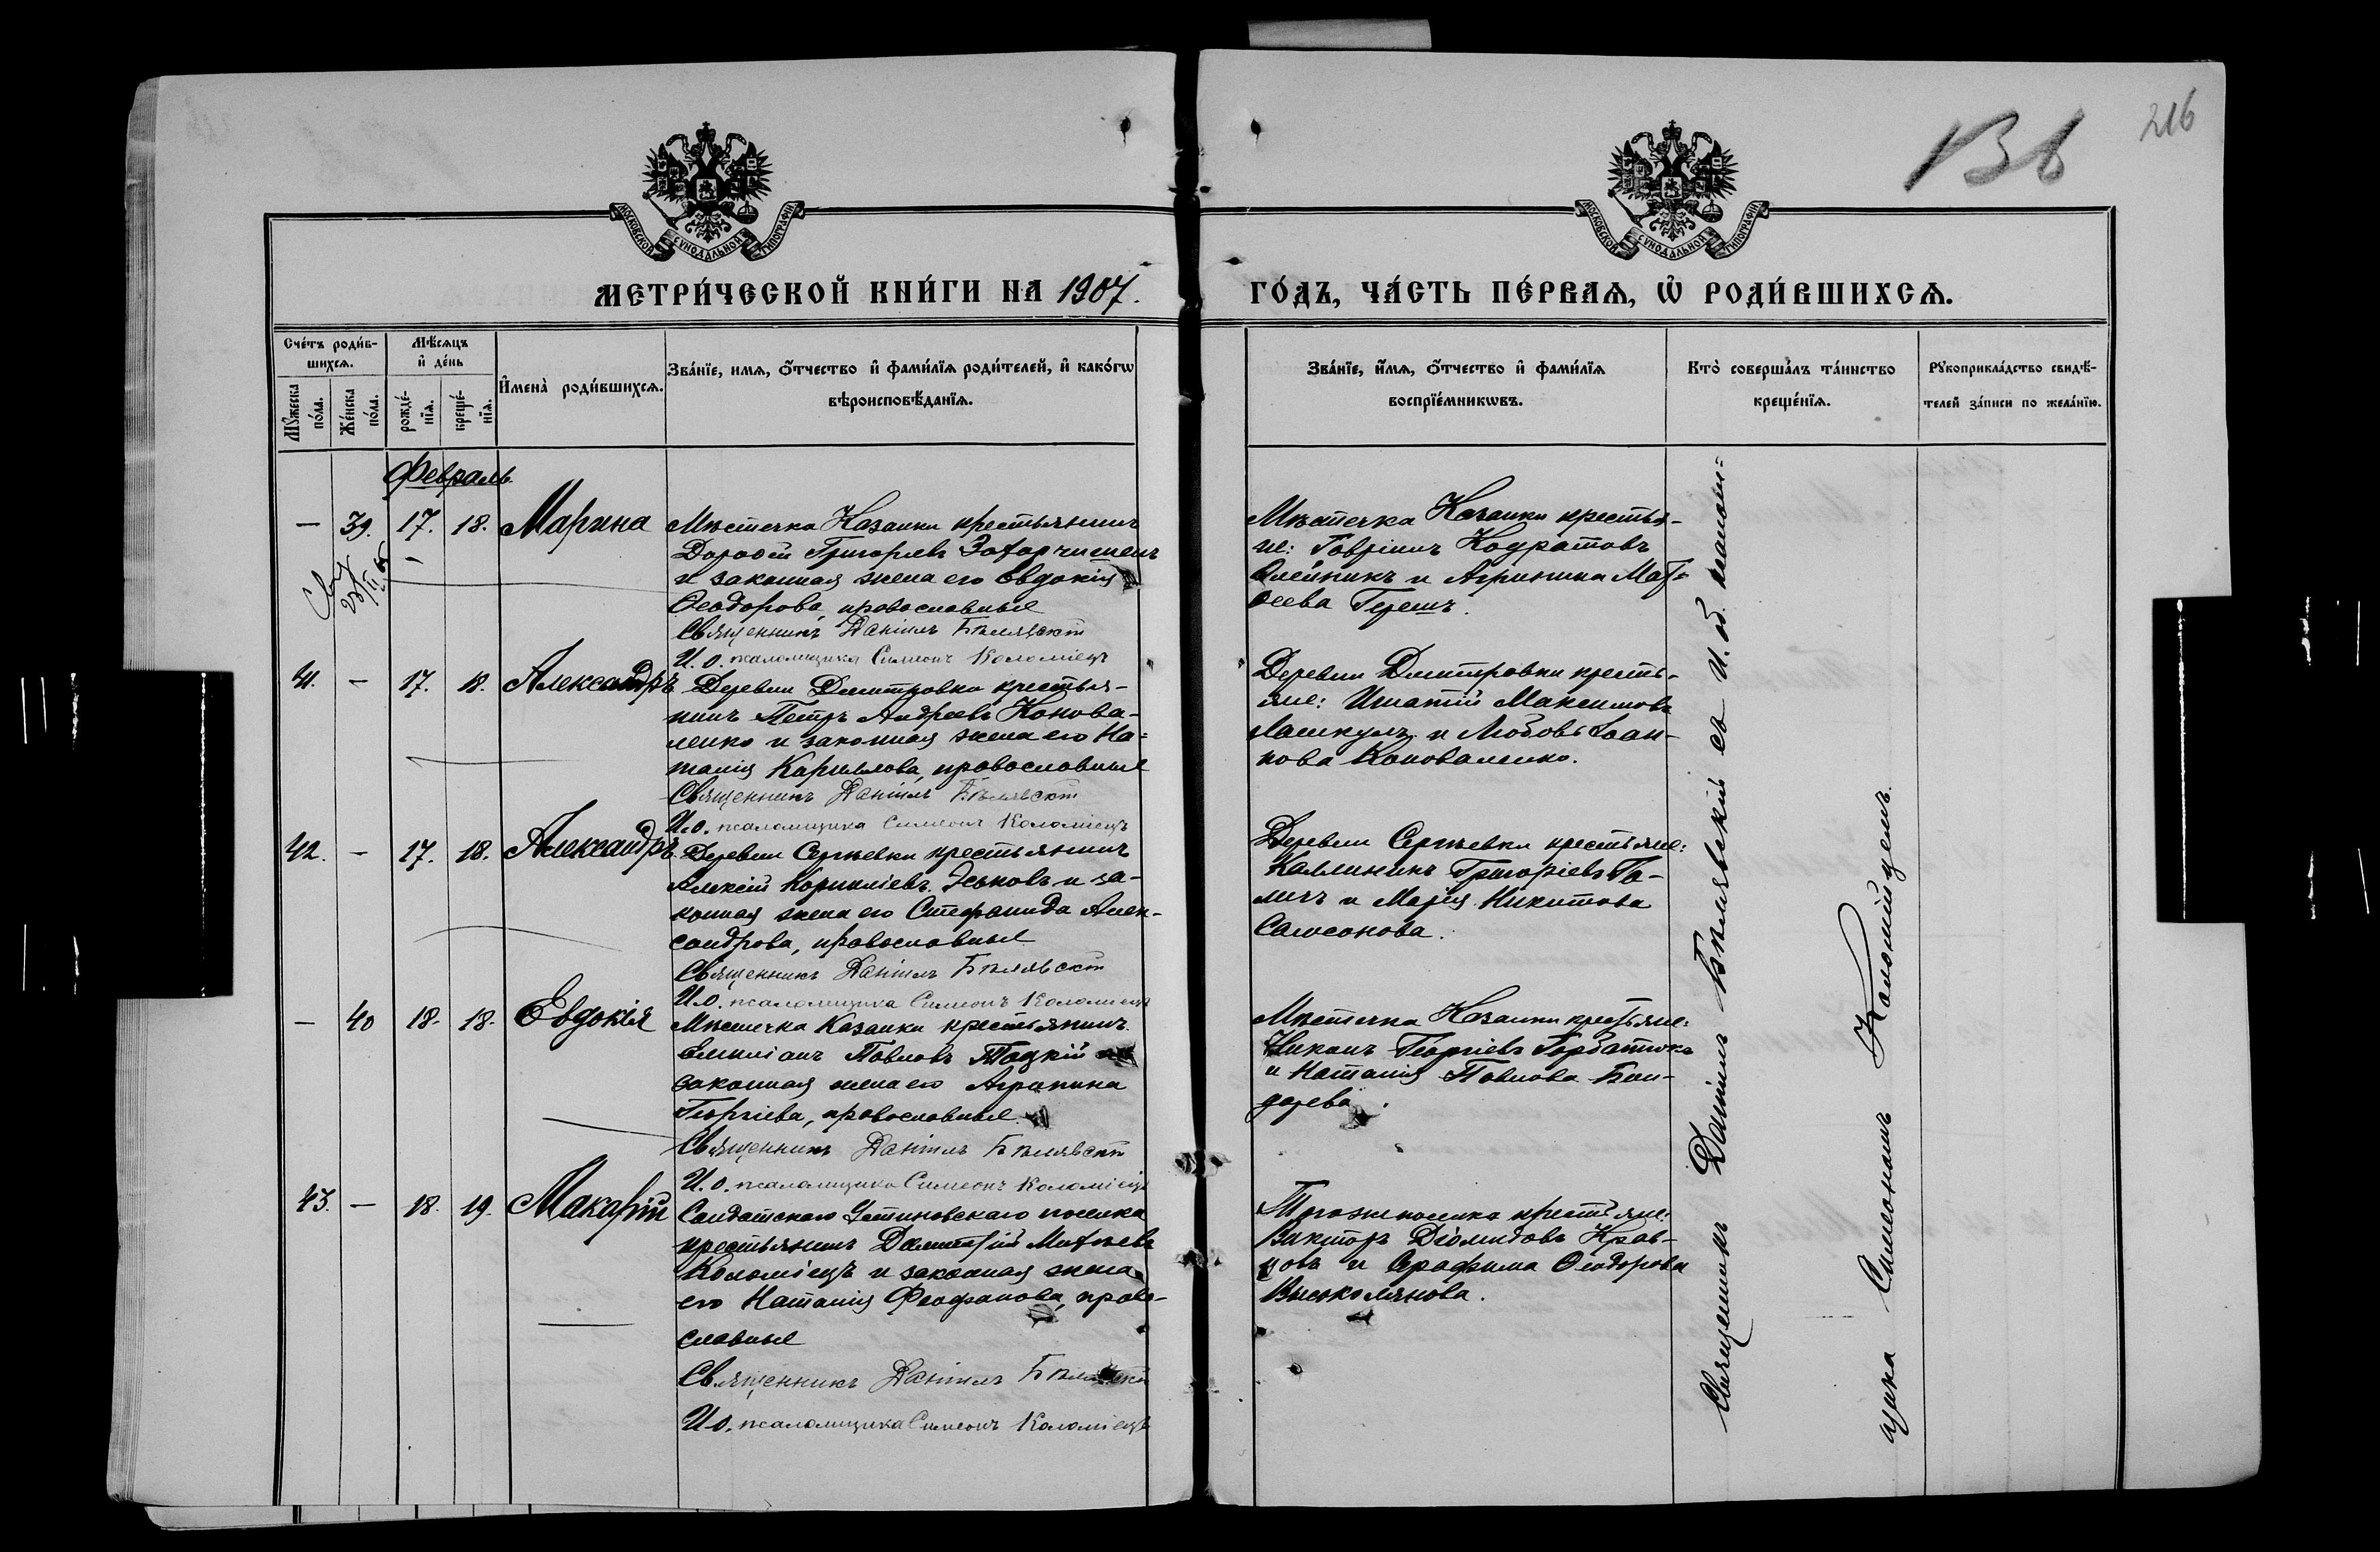 136
216
МОСКОВСКОЙ СѴНОДАЛЬНОЙ ТИПОГРАФІИ
МОСКОВСКОЙ СѴНОДАЛЬНОЙ ТИПОГРАФІИ
МЕТРИ́ЧЕСКОЙ КНИ́ГИ НА 1907.
ГО́ДЪ, ЧА́СТЬ ПЕ́РВАѦ, Ѡ҆ РОДИ́ВШИХСѦ.
Сче́тъ роди́в-
шихсѧ.
Мꙋ́жеска
по́ла.
Же́нска
по́ла.
Мѣ́сѧцъ
и҆ де́нь
рожде́-
нїѧ.
креще́-
нїѧ.
И҆мена̀ роди́вшихсѧ.
Зва́нїе, имѧ, ѻ҆́тчество и҆ фами́лїѧ роди́телей, и҆ како́гѡ
вѣроисповѣ́данїѧ.
Зва́нїе, и҆́мѧ, ѻ҆́тчество и҆ фами́лїѧ
воспрїе́мникѡвъ.
Кто̀ соверша́лъ та́инство
креще́нїѧ.
Рꙋкоприкла́дство свидѣ́-
телей за́писи по жела́нїю.
Февраль
— 39. 17. 18. Марина
Мѣстечка Казанки крестьянинъ
Дороѳей Григорьевъ
и законная жена его Евдокія
Ѳеодорова, православные
Священникъ Даніилъ Бѣлявскій
И. о. псаломщика Симеонъ Коломіецъ
Мѣстечка Казанки крестья-
не: Гавріилъ Кодратовъ
Олейникъ и Агрипина Мат-
ѳеева
41. — 17. 18. Александръ
Деревни Дмитровки крестья-
нинъ Петръ Андреевъ Конова-
ленко и законная жена его На-
талія Кириллова, православные
Священникъ Даніилъ Бѣлявскій
И. о. псаломщика Симеонъ Коломіецъ
Деревни Дмитровки кресть-
яне: Игнатій Максимовъ
и Любовь Іоан-
нова Коноваленко.
42. — 17. 18. Александръ
Деревни Сергѣевки крестьянинъ
Алексій Корниліевъ и за-
конная жена его Стефанида Алек-
сандрова, православные
Священникъ Даніилъ Бѣлявскій
И. о. псаломщика Симеонъ Коломіецъ
Деревни Сергѣевки крестьяне:
Каллиникъ Григоріевъ Га-
личъ и Марія Никитова
Самсонова.
— 40 18. 18. Евдокія
Мѣстечка Казанки крестьянинъ
Емиліанъ Павловъ и
законная жена его Агрипина
Георгіева, православные.
Священникъ Даніилъ Бѣлявскій
И. о. псаломщика Симеонъ Коломіецъ
Мѣстечка Казанки крестьяне:
Никонъ Георгіевъ Горбатюкъ
и Наталія Павлова Бон-
дарева.
43. — 18. 19. Макарій
Солдатскаго Устиновскаго поселка
крестьянинъ Димитрій Матѳеевъ
Коломіецъ и законная жена
его Наталія Феофанова, право-
славные
Священникъ Даніилъ Бѣлявскій
И. о. псаломщика Симеонъ Коломіецъ
Тогоже поселка крестьяне:
Викторъ Діомидовъ Крав-
цовъ и Серафима Ѳеодорова
Священникъ Даніилъ Бѣлявскій съ И. об. псалом-
щика Симеономъ Коломійцемъ.